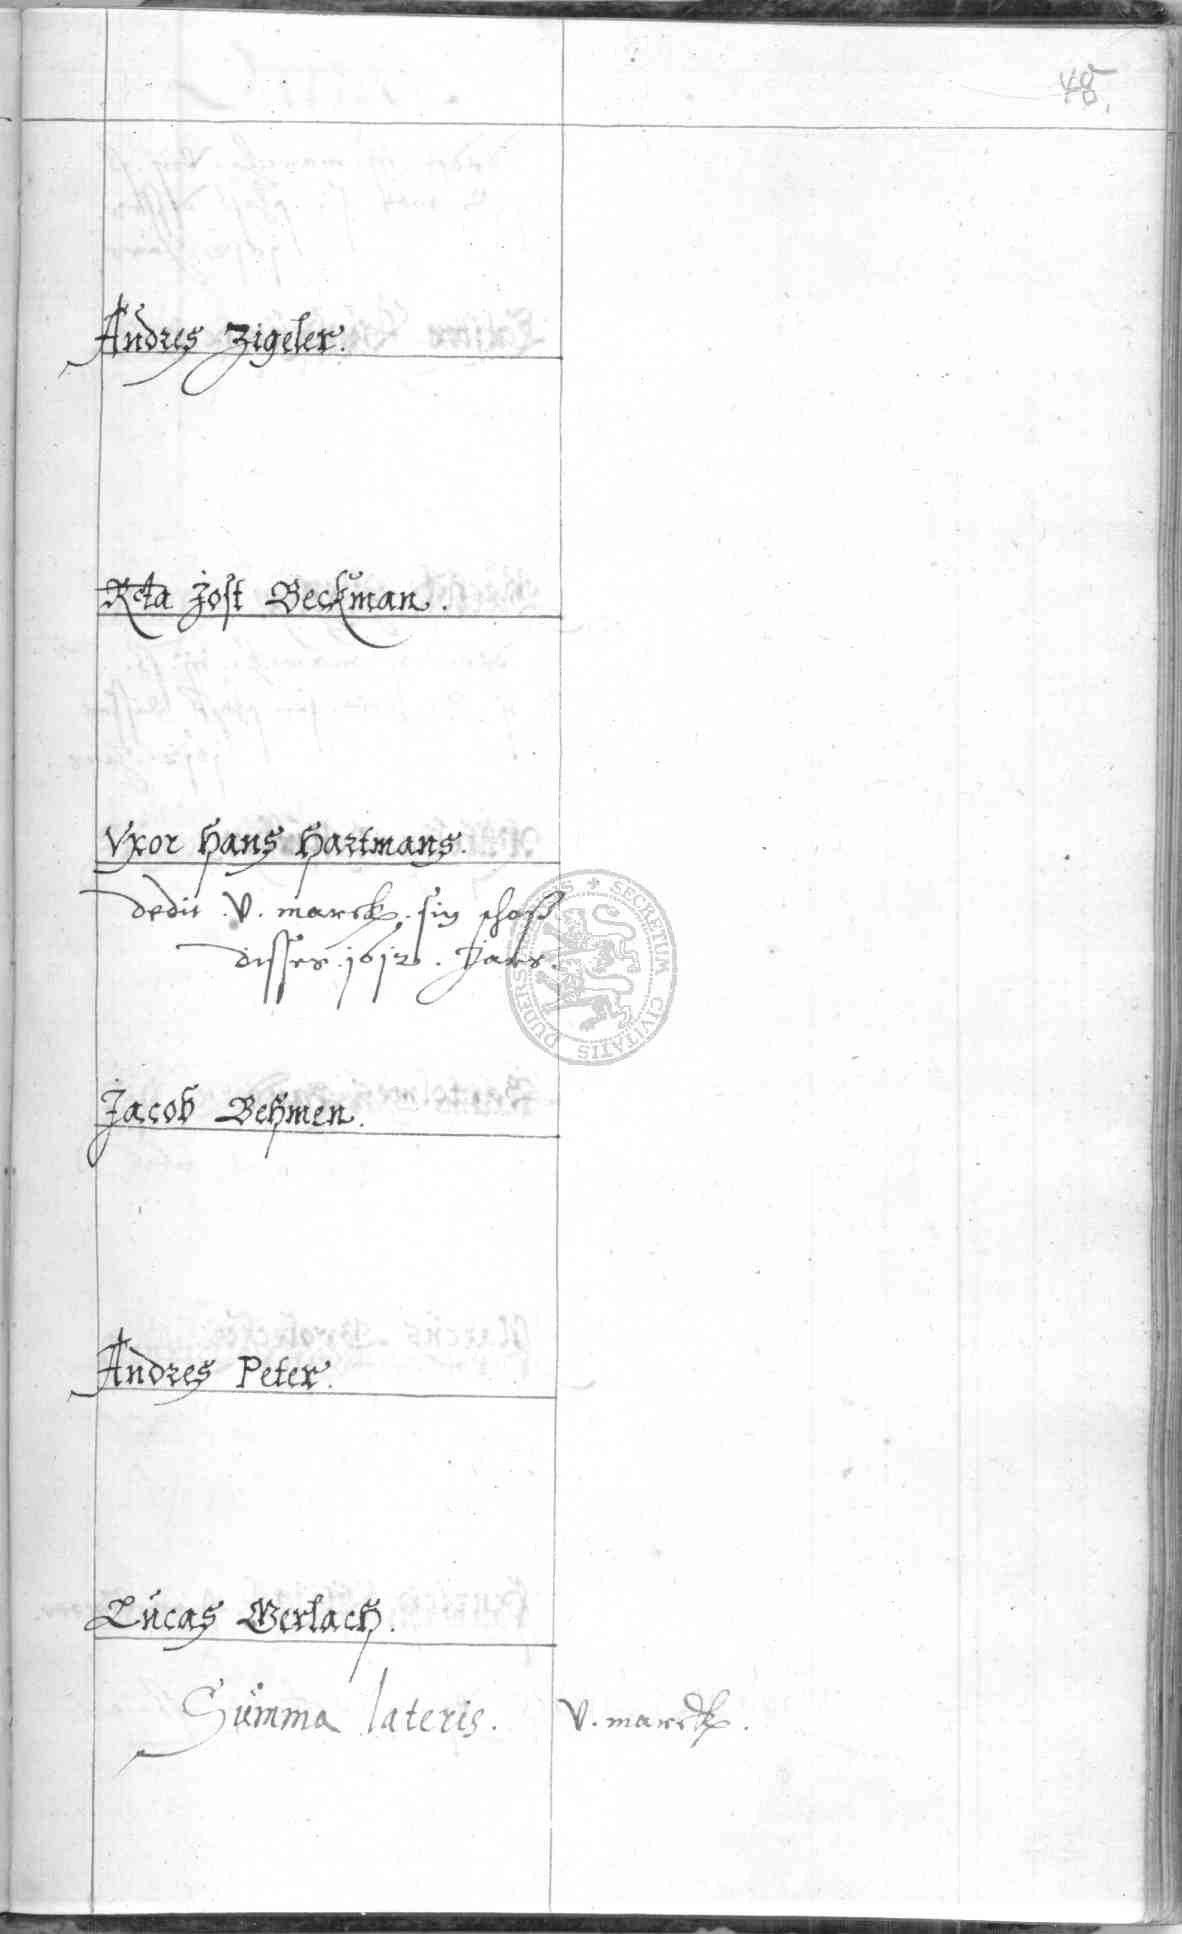 48.
Andres Zigeler.
Rcta Jost Beckman.
Vxor Hans Hartmans.
dedit . V . marck . sin schoß
disses . 1612 . Jars.
Jacob Behmen.
Andres Peter.
Lucas Gerlach.
Summa lateris. V. marck.
SECRETUM CIVITATIS DUDERSTADENSIS